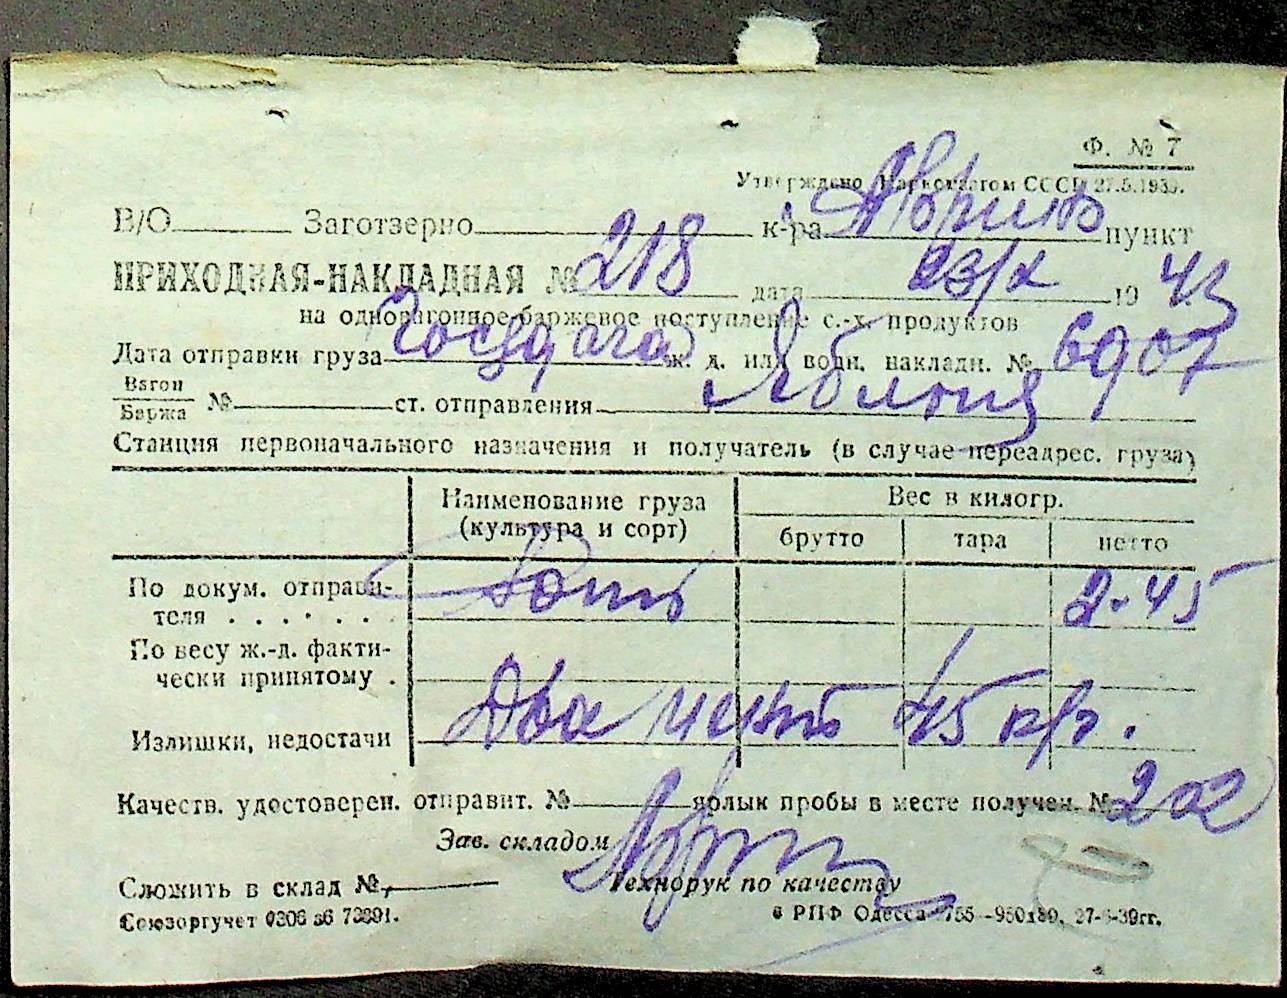 Ф. № 7
Утверждено Наркомзагом СССР 27.5.1939.
В/О Заготзерно к-ра пункт
ПРИХОДНАЯ-НАКЛАДНАЯ № 218 дата 23/X 19 43
на одновагонное-баржевое поступление с.-х. продуктов
Дата отправки груза ж. д. или водн. накладн. №
Вагон
Баржа № ст. отправления
Станция первоначального назначения и получатель (в случае переадрес. груза)
Наименование груза Вес в килогр.
(культура и сорт) брутто тара нетто
По докум. отправи-
теля . . . . . . . 2-45
По весу ж.-д. факти-
чески принятому .
Два цент 45 кгр.
Излишки, недостачи
Качеств. удостоверен. отправит. № ярлык пробы в месте получен. № 202
Зав. складом
Сложить в склад № Технорук по качеству
Союзоргучет 0306 зб 73891. РПФ Одесса